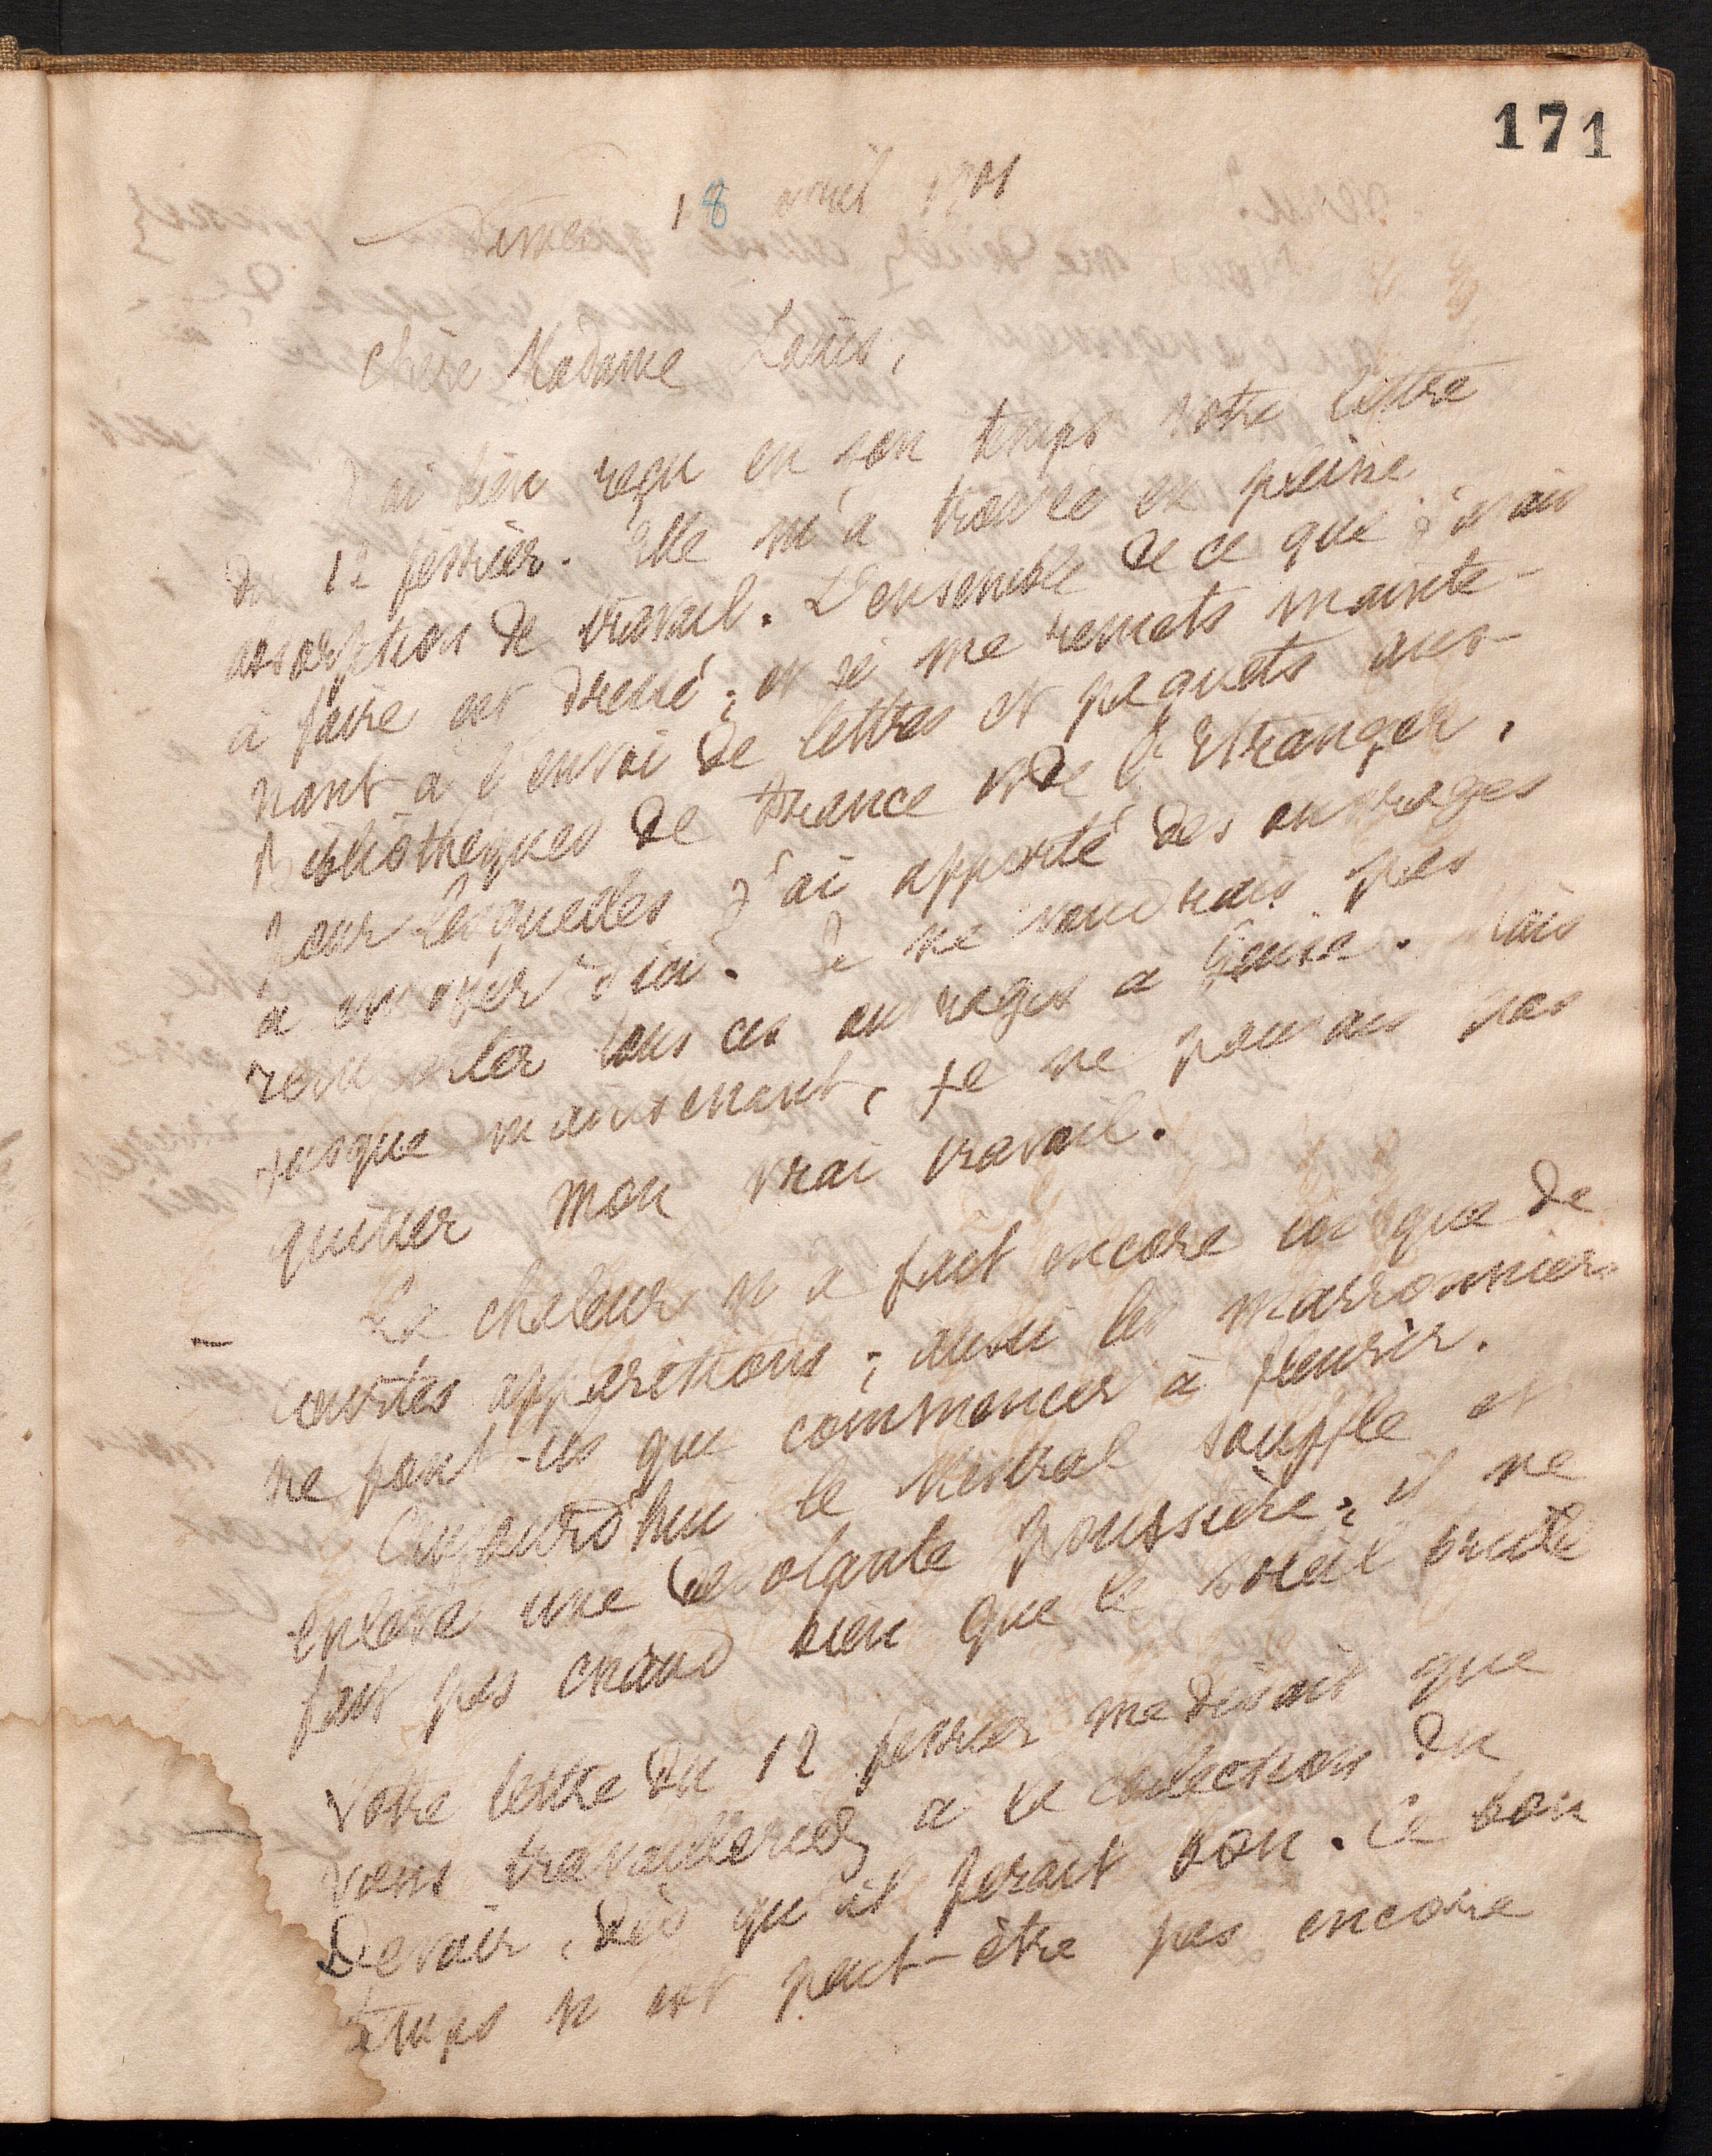 171
Nimes 18 avril 1901
Chère Madame Louis,
J'ai bien reçu en son temps votre lettre
du 12 février. Elle m'a trouvée en pleine
absorption de travail. L'ensemble de ce que j'avais
à faire est dressé; et je me remets mainte-
nant à l'envoi de lettres et paquets aux
Bibliothèques de France et de l'Etranger,
pour lesquelles j'ai apporté des ouvrages
à envoyer d'ici. Je ne voudrais pas
remporter tous ces ouvrages à Guise. Mais
jusque maintenant, je ne pouvais pas
quitter mon vrai travail.
La chaleur n'a fait encore ici que de
courtes apparitions; aussi les marronniers
ne font-ils que commencer à fleurir.
Aujourd'hui le Mistral souffle et
enlève une désolante poussière; il ne
fait pas chaud bien que le soleil brille
Votre lettre du 12 février me disait que
vous travailleriez à la collection du
Devoir, dès qu'il ferait bon. Ce bon
temps n'est peut-être pas encore